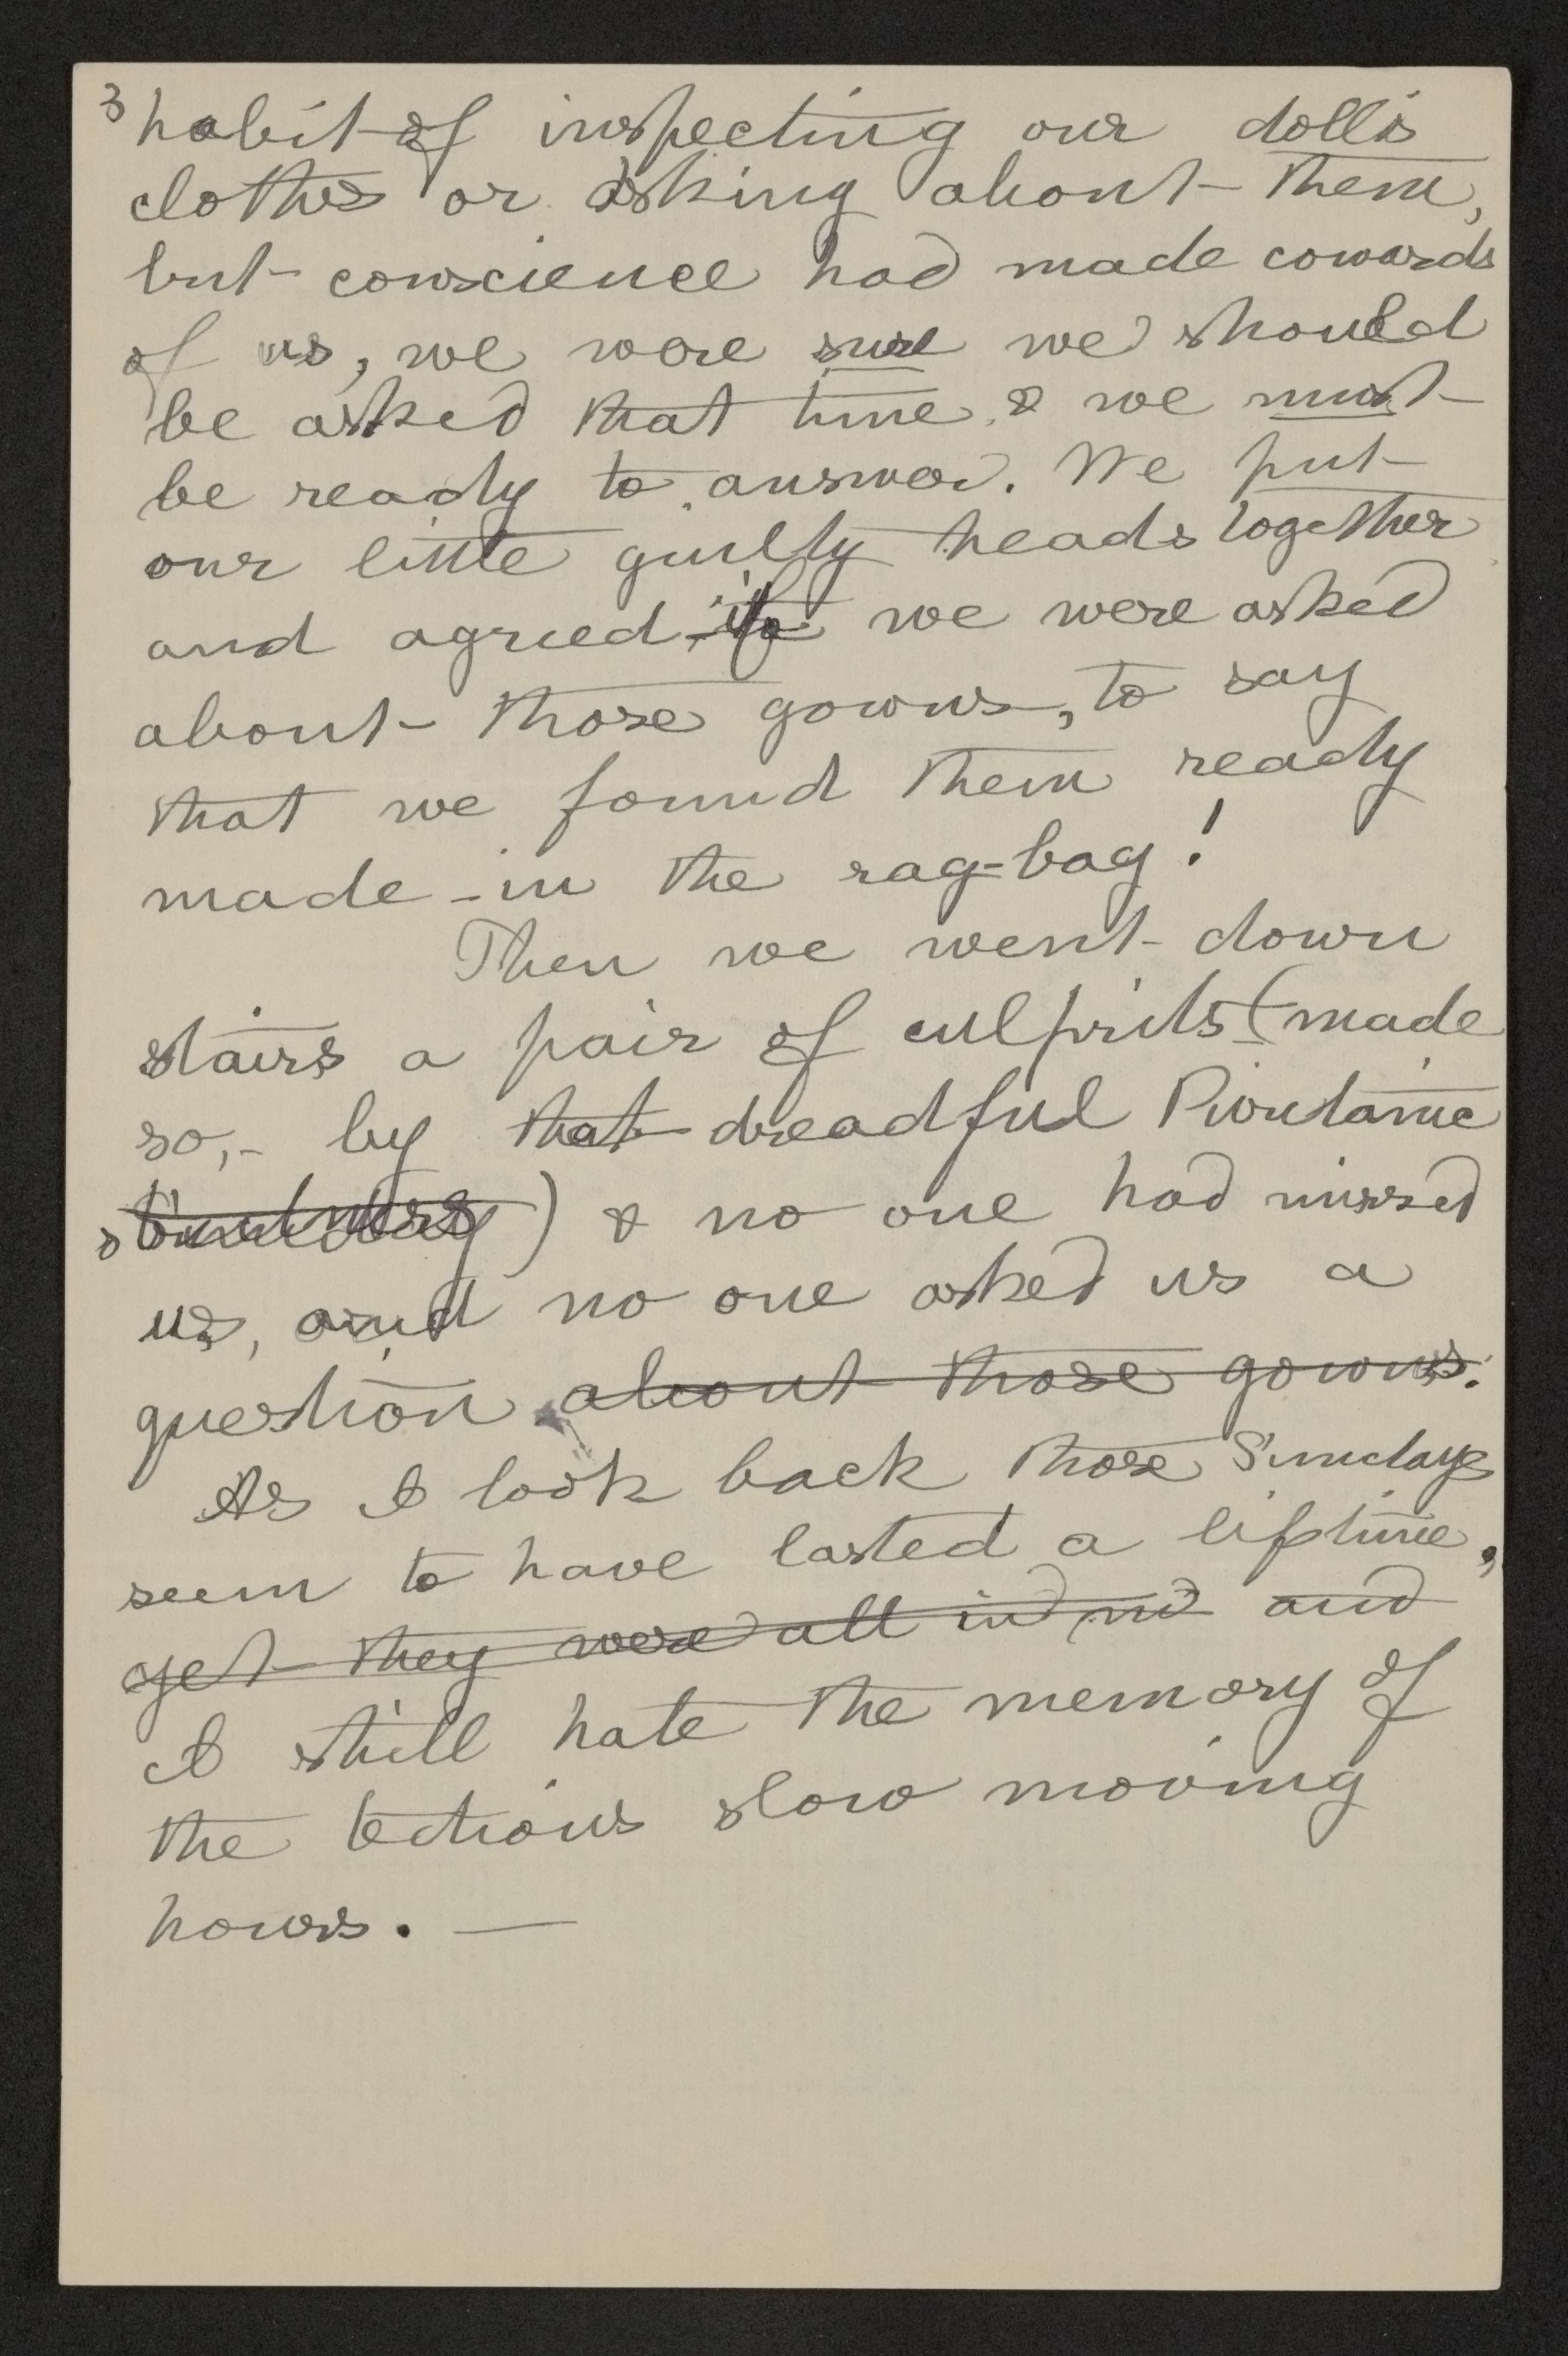 3 habit of inspecting our doll's
clothes or asking about them,
but conscience had made cowards
of us, we were sure we should
be asked that time & we must
be ready to answer. We put
our little guilty heads together
and agreed - if we were asked
about those gowns, to say
that we found them ready
made - in the rag-bag!
Then we went down
stairs a pair of culprits (made
so, - by that dreadful
) & no one had missed
us, and no one asked us a
question about those gowns.
As I look back those Sundays
seem to have lasted a lifetime,
yet they were all and
I still hate the memory of
the tedious slow moving
hours. —